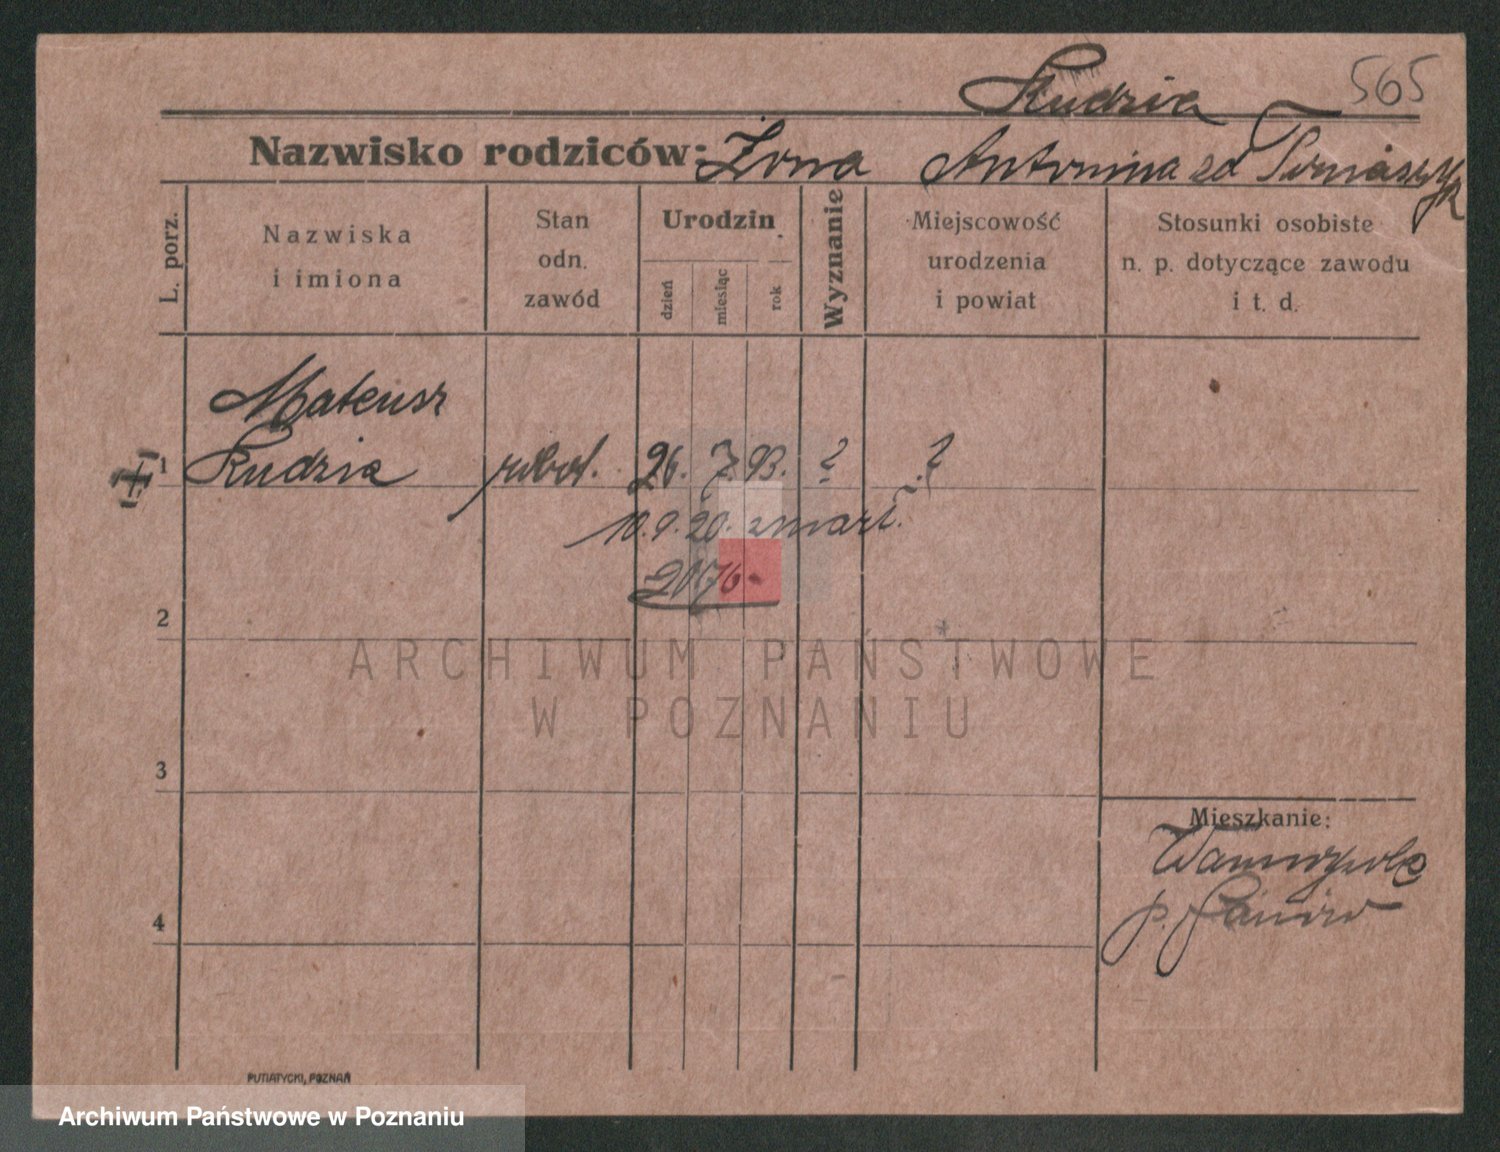 Kudzia 565
Nazwisko rodziców: Żona Antonina zd
L. porz.
Nazwiska
i imiona
Stan
odn.
zawód
Urodzin
dzień
miesiąc
rok
Wyznanie
Miejscowość
urodzenia
i powiat
Stosunki osobiste
n. p. dotyczące zawodu
i t. d.
Mateusz
1 Kudzia robot. 26. 7. 93. ? ?
10. 9. 20. zmarł.
2
ARCHIWUM PAŃSTWOWE
W POZNANIU
3
Mieszkanie:
4
PUTIATYCKI, POZNAŃ
Archiwum Państwowe w Poznaniu